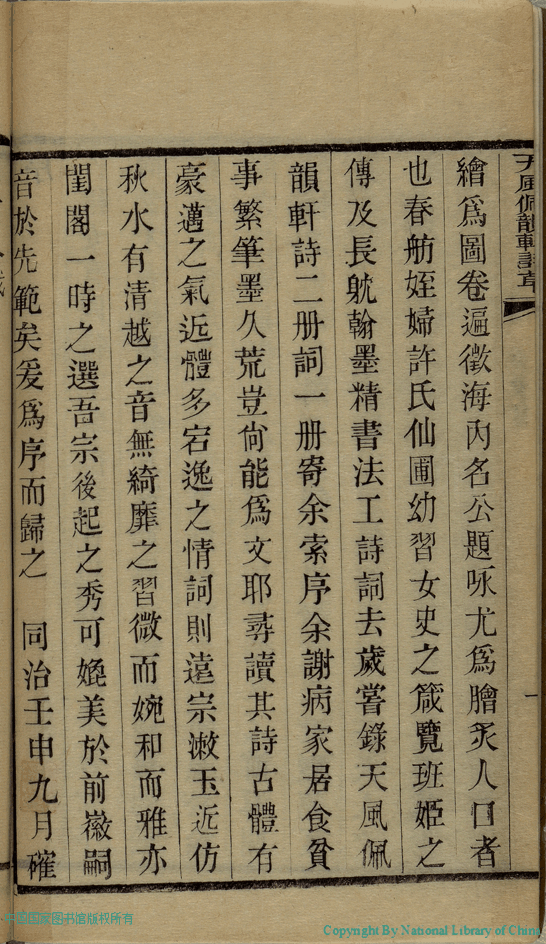 天風佩韻軒詩草
一
繪爲圖卷遍徵海內名公題咏尤爲膾炙人口者
也春舫姪婦許氏仙圃幼習女史之箴覽班姬之
傳及長躭翰墨精書法工詩詞去歲嘗錄天風佩
韻軒詩二册詞一册寄余索序余謝病家居食貧
事繁筆墨久荒豈尙能爲文耶尋讀其詩古體有
豪邁之氣近體多宕逸之情詞則遠宗潄玉近仿
秋水有清越之音無綺靡之習微而婉和而雅亦
閨閣一時之選吾宗後起之秀可媲美於前徽嗣
音於先範矣爰爲序而歸之　同治壬申九月確
中国国家图书馆版权所有
Copyright By National Library of China